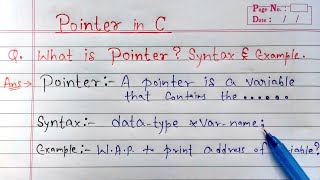 Pointer in C
Page No.:
Date: / /
Q. What is Pointer? Syntax & Example.
Ans:→ Pointer:- A pointer is a variable
that contains the ......
Syntax:- data-type *var-name;
Example:- W.A.P. to print address of variable?